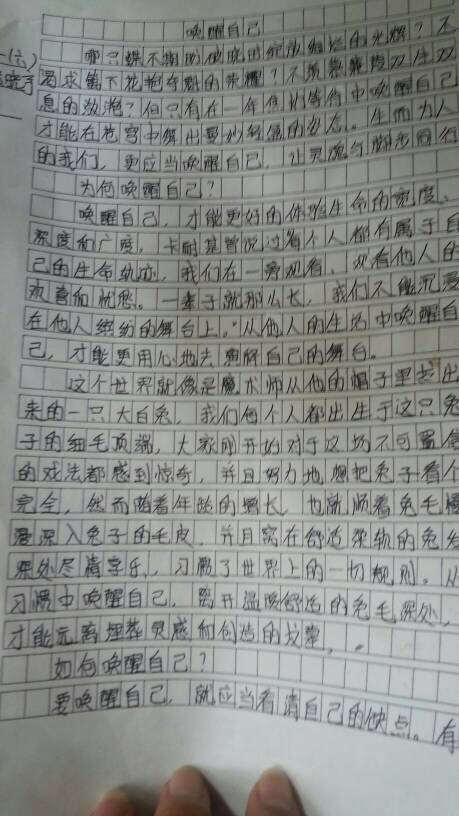 唤醒自己
哪只蝶不期盼破茧时绽放绚烂的光辉？不
渴求留下花艳夺魁的荣耀？不
息的激滟？但只有在一年年的等待中唤醒自己
才能在苍穹中舞出曼妙轻盈的姿态。生而为人
的我们，更应当唤醒自己，让灵魂与脚步同行
为何唤醒自己？
唤醒自己，才能更好的体验生命的宽度、
深度和广度。卡耐基曾说过每个人都有属于自
己的生命轨迹，我们在一旁观看，观看他人的
欢喜和忧愁。一辈子就那么长，我们不能沉浸
在他人缤纷的舞台上。从他人的生活中唤醒自
己，才能更用心地去理解自己的舞台。
这个世界就像是魔术师从他的帽子里变出
来的一只大白兔，我们每个人都出生于这只兔
子的细毛顶端，大家刚开始对于这场不可置信
的戏法都感到惊奇，并且努力地想把兔子看个
完全，然而随着年龄的增长，也就顺着兔毛慢
慢深入兔子的毛皮，并且窝在舒适柔软的兔毛
深处尽情享乐，习惯了世界上的一切规则。从
习惯中唤醒自己，离开温暖舒适的兔毛深处，
才能远离埋葬灵感和创造的坟墓。
如何唤醒自己？
要唤醒自己，就应当看清自己的缺点。有